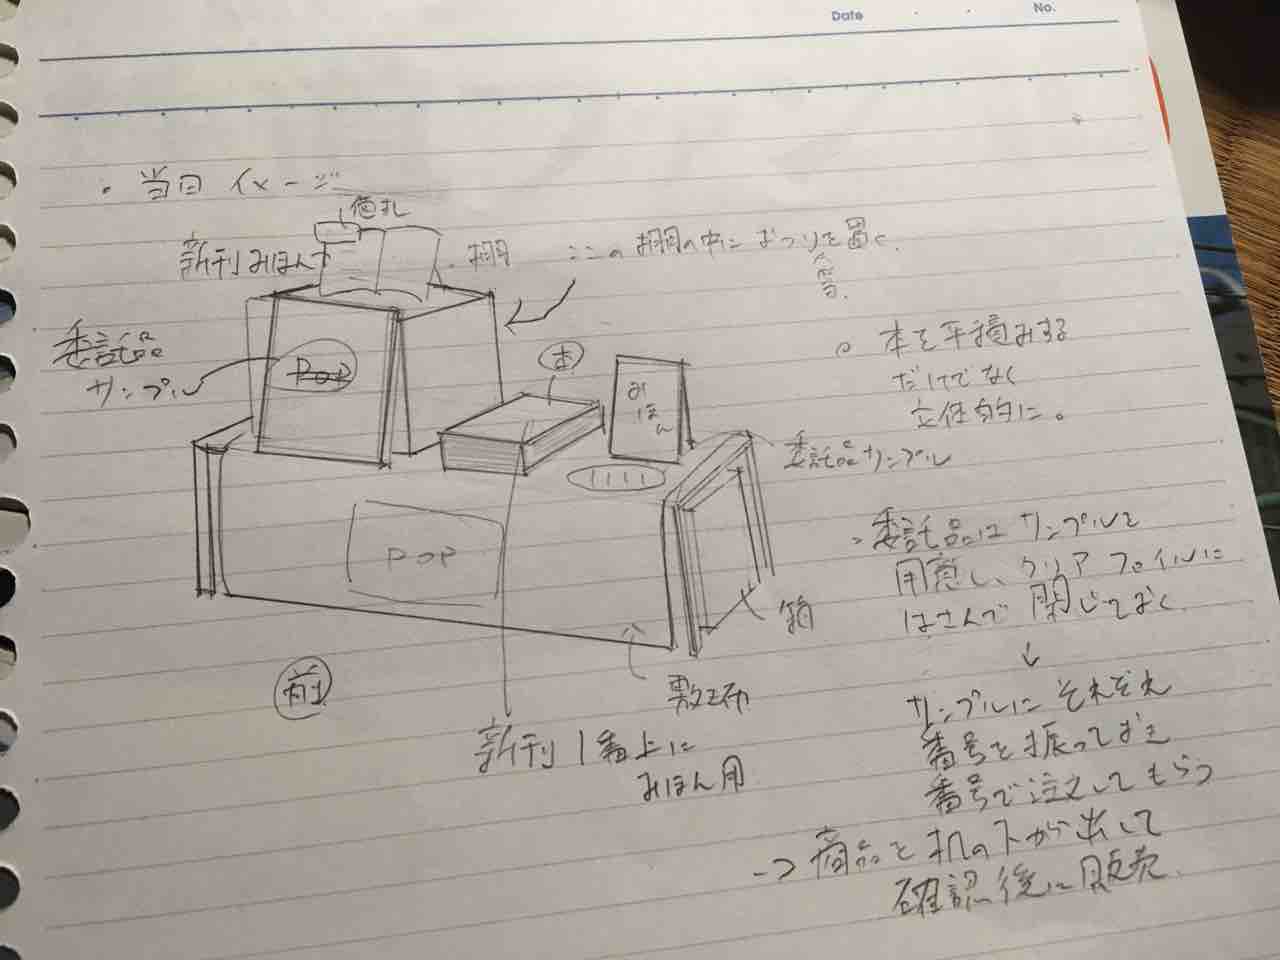 Date . . No.
・当日イメージ
値札
新刊みほん
棚
ここの棚の中におつりを置く。
等。
委託品
サンプル
POP
本
みほん
○ 本を平積みする
だけでなく
立体的に。
委託品サンプル
POP
・委託品はサンプルを
用意し、クリアファイルに
はさんで閉じておく
↓
サンプルにそれぞれ
番号を振っておき
番号で注文してもらう
→ 商品を机の下から出して
確認後に販売。
箱
前
敷布
新刊1番上に
みほん用